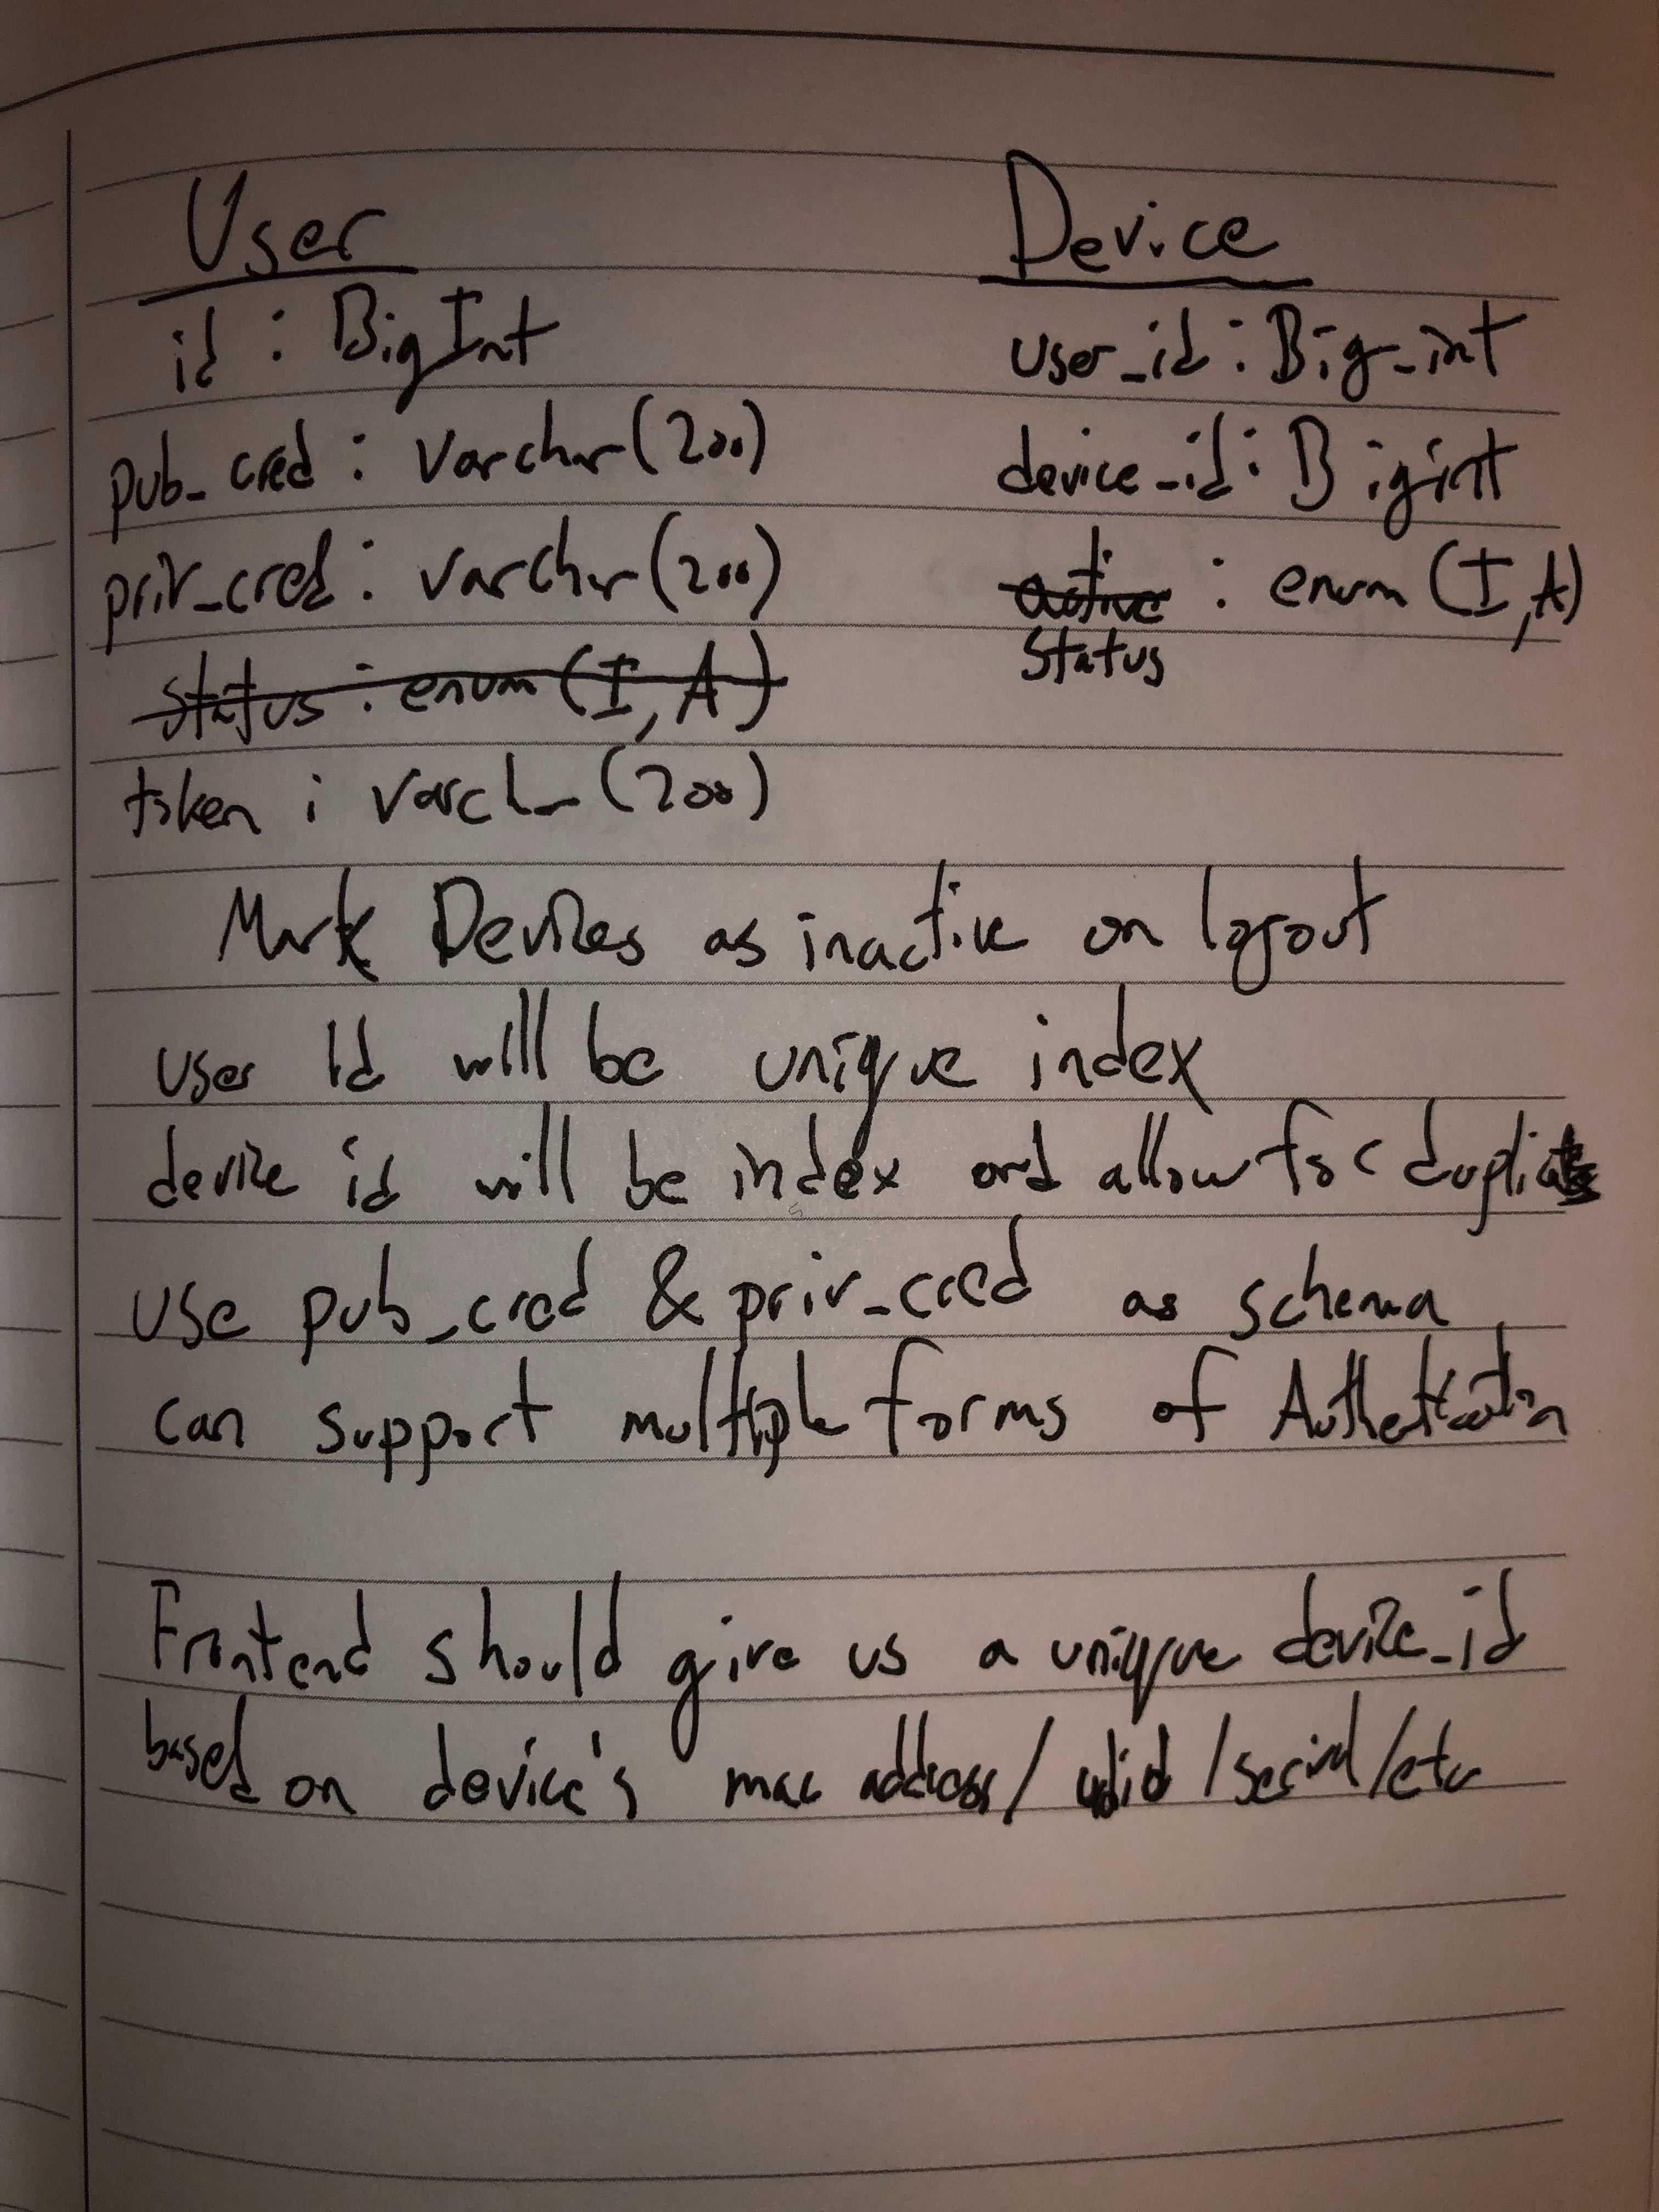 User
id : BigInt
pub_cred : varchar(200)
priv_cred : varchar(200)
status : enum(I, A)
token : varchar(200)
Device
user_id : Big_int
device_id : Bigint
active : enum(I,A)
status
Mark Devices as inactive on logout
user id will be unique index
device id will be index and allow for duplicates
use pub_cred & priv_cred as schema
can support multiple forms of Authentication
Frontend should give us a unique device_id
based on device's mac address/ /serial/etc